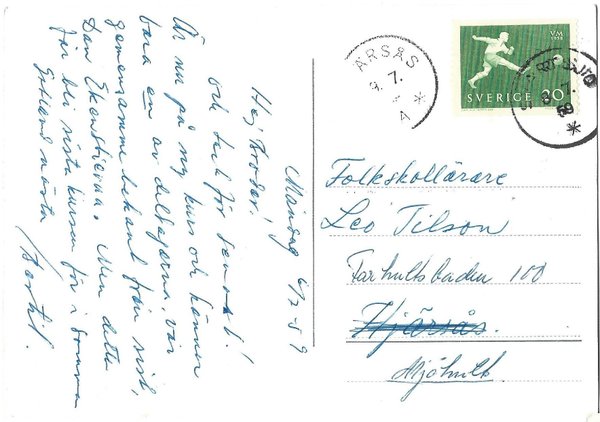 Måndag 6/7-59
Hej Broder!
och tack för senast!
Är nu på ny kurs och känner
bara en av deltagarna, vår
gemensamme bekant från sist,
Dan Ekenstierna. Men detta
får bli sista kursen för i sommar
Bertil.
ÄRSÅS
9.7.
A *
VM
1958
SVERIGE 30
Folkskollärare
Leo Tilson
Farhultsbaden 100
Hjärsås.
Mjöhult.